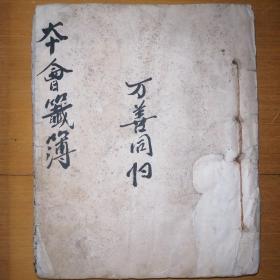 万善同归
夲會籤簿